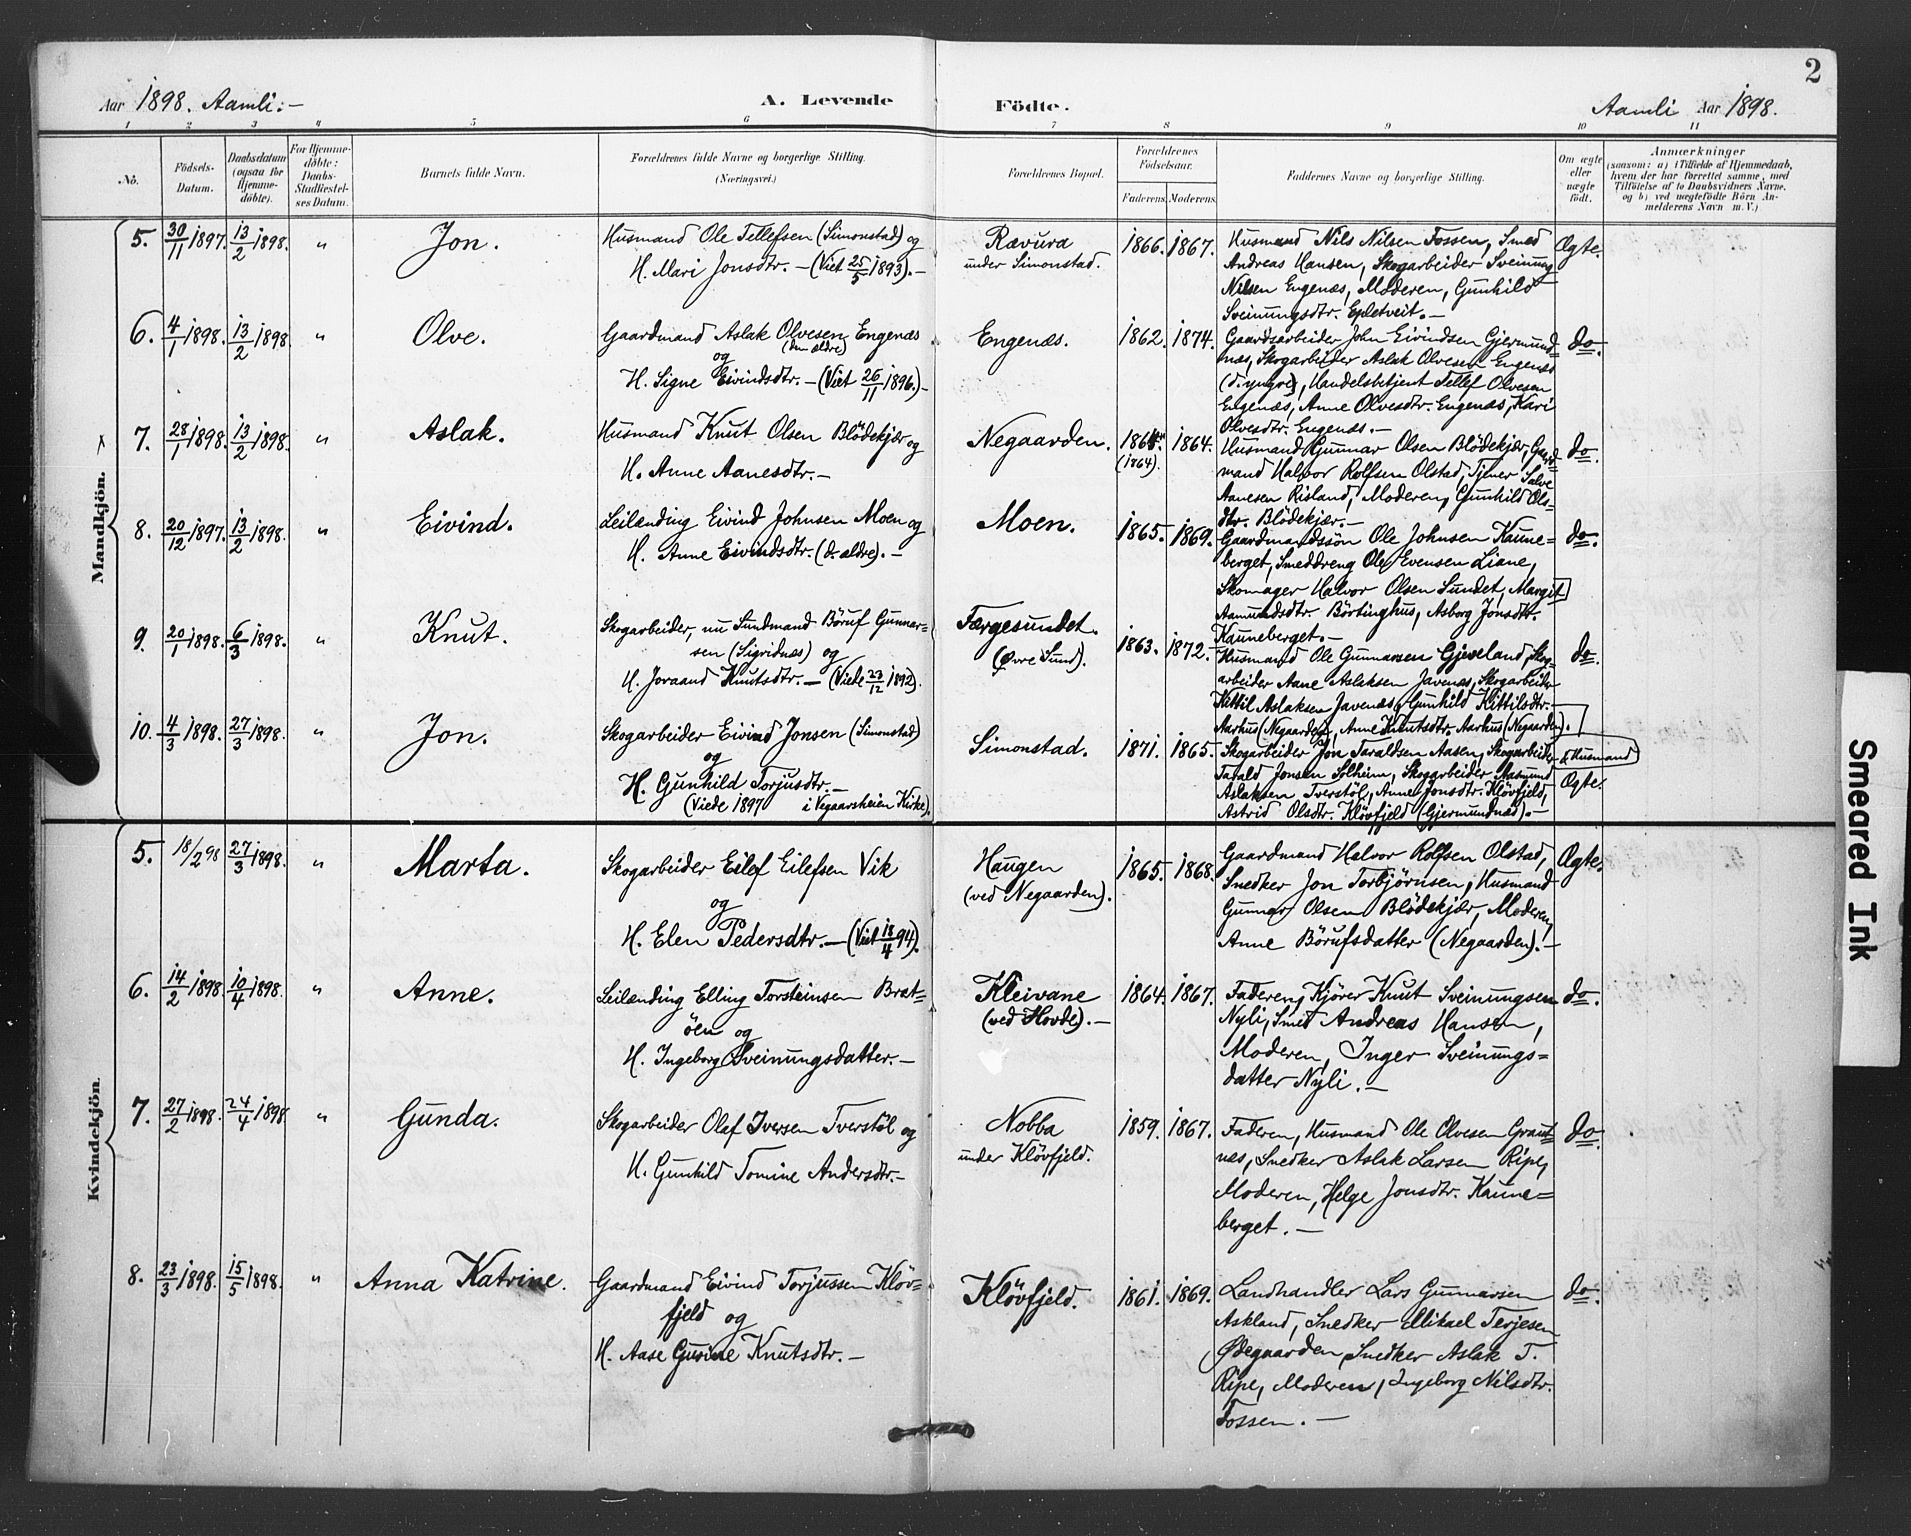 2
Aar 1898. Aamli:-
A. Levende
Födte.
Aamli Aar 1898.
1 2 3 4 5 6 7 8 9 10 11
No.
Födsels-
Datum.
Daabsdatum
(ogsaa for
Hjemme-
döbte).
For Hjemme-
döbte:
Daabs-
Stadfæstel-
ses Datum.
Barnets fulde Navn.
Forældrenes fulde Navne og borgerlige Stilling.
(Næringsvei.)
Forældrenes Bopæl.
Forældrenes
Födselsaar.
Faderens. Moderens.
Faddernes Navne og borgerlige Stilling.
Om ægte
eller
uægte
födt.
Anmærkninger
(saasom: a) i Tilfælde af Hjemmedaab,
hvem der har forrettet samme, med
Tilföielse af to Daabsvidners Navne,
og b) ved uægtefödte Börn An-
melderens Navn m. V.)
Mandkjön.
5. 30/11 1897. 13/2 1898. " Jon.
Husmand Ole Tellefsen (Simonstad) og
H. Mari Jonsdtr. - (Viet 25/5 1893). -
Rævura
under Simonstad.
1866. 1867.
Husmand Nils Nilsen Fossen, Smed
Andreas Hansen, Skogarbeider Sveinung
Nilsen Engenæs, Moderen, Gunhild
Sveinungsdtr. Epletveit. -
Ægte.
6. 4/1 1898. 13/2 1898. " Olve.
Gaardmand Aslak Olvesen Engenæs
(den ældre)
og
H. Signe Eivindsdtr. - (Viet 26/11 1896.) -
Engenæs.
1862. 1874.
Gaardsarbeider John Eivindsen Gjermund-
næs, Skogarbeider Aslak Olvesen Engenæs
(d. yngre), Handelsbetjent Tellef Olvesen
Engenæs, Anne Olvesdtr. Engenæs, Kari
Olvesdtr. Engenæs. -
do.
7. 28/1 1898. 13/2 1898. " Aslak.
Husmand Knut Olsen Blödekjær og
H. Anne Aanesdtr. -
Negaarden.
(1864). 1864.
Husmand Gunnar Olsen Blödekjær, Gaard-
mand Halvor Rolfsen Olstad, Tjener Salve
Aanesen Risland, Moderen, Gunhild Ols-
dtr. Blödekjær. -
do.
8. 20/12 1897. 13/2 1898. " Eivind.
Leilænding Eivind Johnsen Moen og
H. Anne Eivindsdtr. (d. ældre). -
Moen.
1865. 1869.
Gaardmandssön Ole Johnsen Kaune-
berget, Smeddreng Ole Evensen Liane,
Skomager Halvor Olsen Sundet, Margit
Aamundsdtr. Börtinghus, Asborg Jonsdtr.
Kauneberget. -
do.
9. 20/1 1898. 6/3 1898. " Knut.
Skogarbeider, nu Sundmand Böruf Gunnar-
sen (Sigridnæs) og
H. Joraand Knutsdtr. - (Viede 27/12 1892).
Færgesundet.
(Øvre Sund).
1863. 1872.
Husmand Ole Gunnarsen Gjeveland, Skog-
arbeider Aane Aslaksen Javenæs, Skogarbeider
Kittil Aslaksen Javenæs, Gunhild Kittilsdtr.
Aarhus (Negaarden), Anne Knutsdtr. Aarhus (Negaarden).
do.
10. 4/3 1898. 27/3 1898. " Jon.
Skogarbeider Eivind Jonsen (Simonstad)
og
H. Gunhild Torjusdtr. -
(Viede 1897 i Vegaarsheien Kirke).
Simonstad.
1871. 1865.
Skogarbeider Jon Taraldsen Aasen, Skogarbeider & Husmand
Tarald Jonsen Solheim, Skogarbeider Aasmund
Aslaksen Tverstöl, Anne Jonsdtr. Klövfjeld,
Astrid Olsdtr. Klövfjeld (Gjermundnæs). -
Ægte.
Kvindekjön.
5. 18/2 98 27/3 1898. " Marta.
Skogarbeider Eilef Eilefsen Vik
og
H. Elen Pedersdtr. - (Viet 18/4 94).
Haugen
(ved Negaarden).
1865. 1868.
Gaardmand Halvor Rolfsen Olstad,
Snedker Jon Torbjörnsen, Husmand
Gunnar Olsen Blödekjær, Moderen,
Anne Börufsdatter (Negaarden). -
Ægte.
6. 14/2 1898 10/4 1898. " Anne.
Leilænding Elling Torsteinsen Brat-
öen og
H. Ingeborg Sveinungsdatter. -
Kleivane
(ved Hovde). -
1864. 1867.
Faderen, Kjörer Knut Sveinungsen
Nyli, Smed Andreas Hansen,
Moderen, Inger Sveinungs=
datter Nyli. -
do.
7. 27/2 1898. 24/4 1898. " Gunda.
Skogarbeider Olaf Iversen Tverstöl og
H. Gunhild Tomine Andersdtr. -
Nobba
under Klövfjeld.
1859. 1867.
Faderen, Husmand Ole Olvesen Graut-
næs, Snedker Aslak Larsen Ripe,
Moderen, Helge Jonsdtr. Kaune=
berget. -
do.
8. 23/3 1898. 15/5 1898. " Anna Katrine.
Gaardmand Eivind Torjussen Klöv-
fjeld og
H. Aase Gusine Knutsdtr. -
Klövfjeld.
1861. 1869.
Landhandler Lars Gunnarsen
Askland, Snedker Mikael Terjesen
Ødegaarden, Snedker Aslak T.
Ripe, Moderen, Ingeborg Nilsdtr.
Fossen. -
do.
Smeared Ink